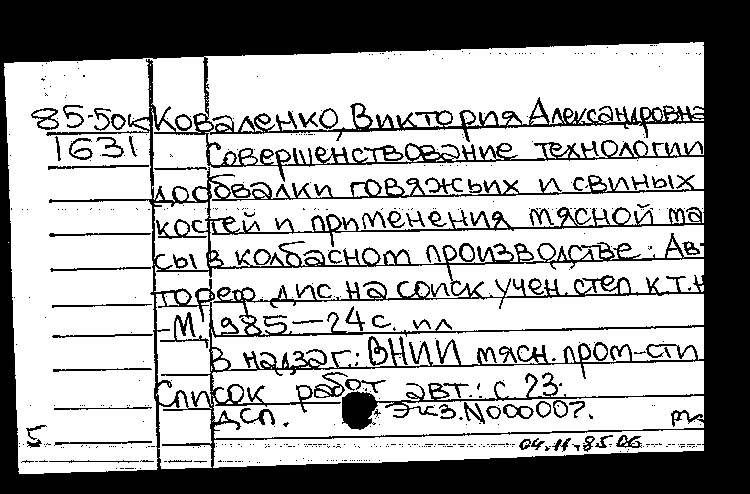 85-5ок Коваленко, Виктория Александровна
1631 Совершенствование технологии
дообвалки говяжьих и свиных
костей и применения мясной ма
сы в колбасном производстве: Ав
тореф. дис. на соиск. учен. степ. к.т.н
-М., 1985.-24 с. ил
В надзаг.: ВНИИ мясн. пром-сти
Список работ авт.: с 23.
ДСП. Экз.N000007.
5 04.11.85.06